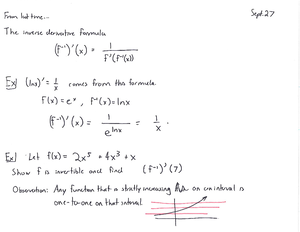 From last time...
Sept. 27
The inverse derivative formula
(f⁻¹)'(x) = 1 / f'(f⁻¹(x))
Ex) (lnx)' = 1/x comes from this formula.
f(x) = eˣ, f⁻¹(x) = lnx
(f⁻¹)'(x) = 1 / e^lnx = 1/x.
Ex) Let f(x) = 2x⁵ + 4x³ + x
Show f is invertible and find (f⁻¹)'(7)
Observation: Any function that is strictly increasing on an interval is
one-to-one on that interval